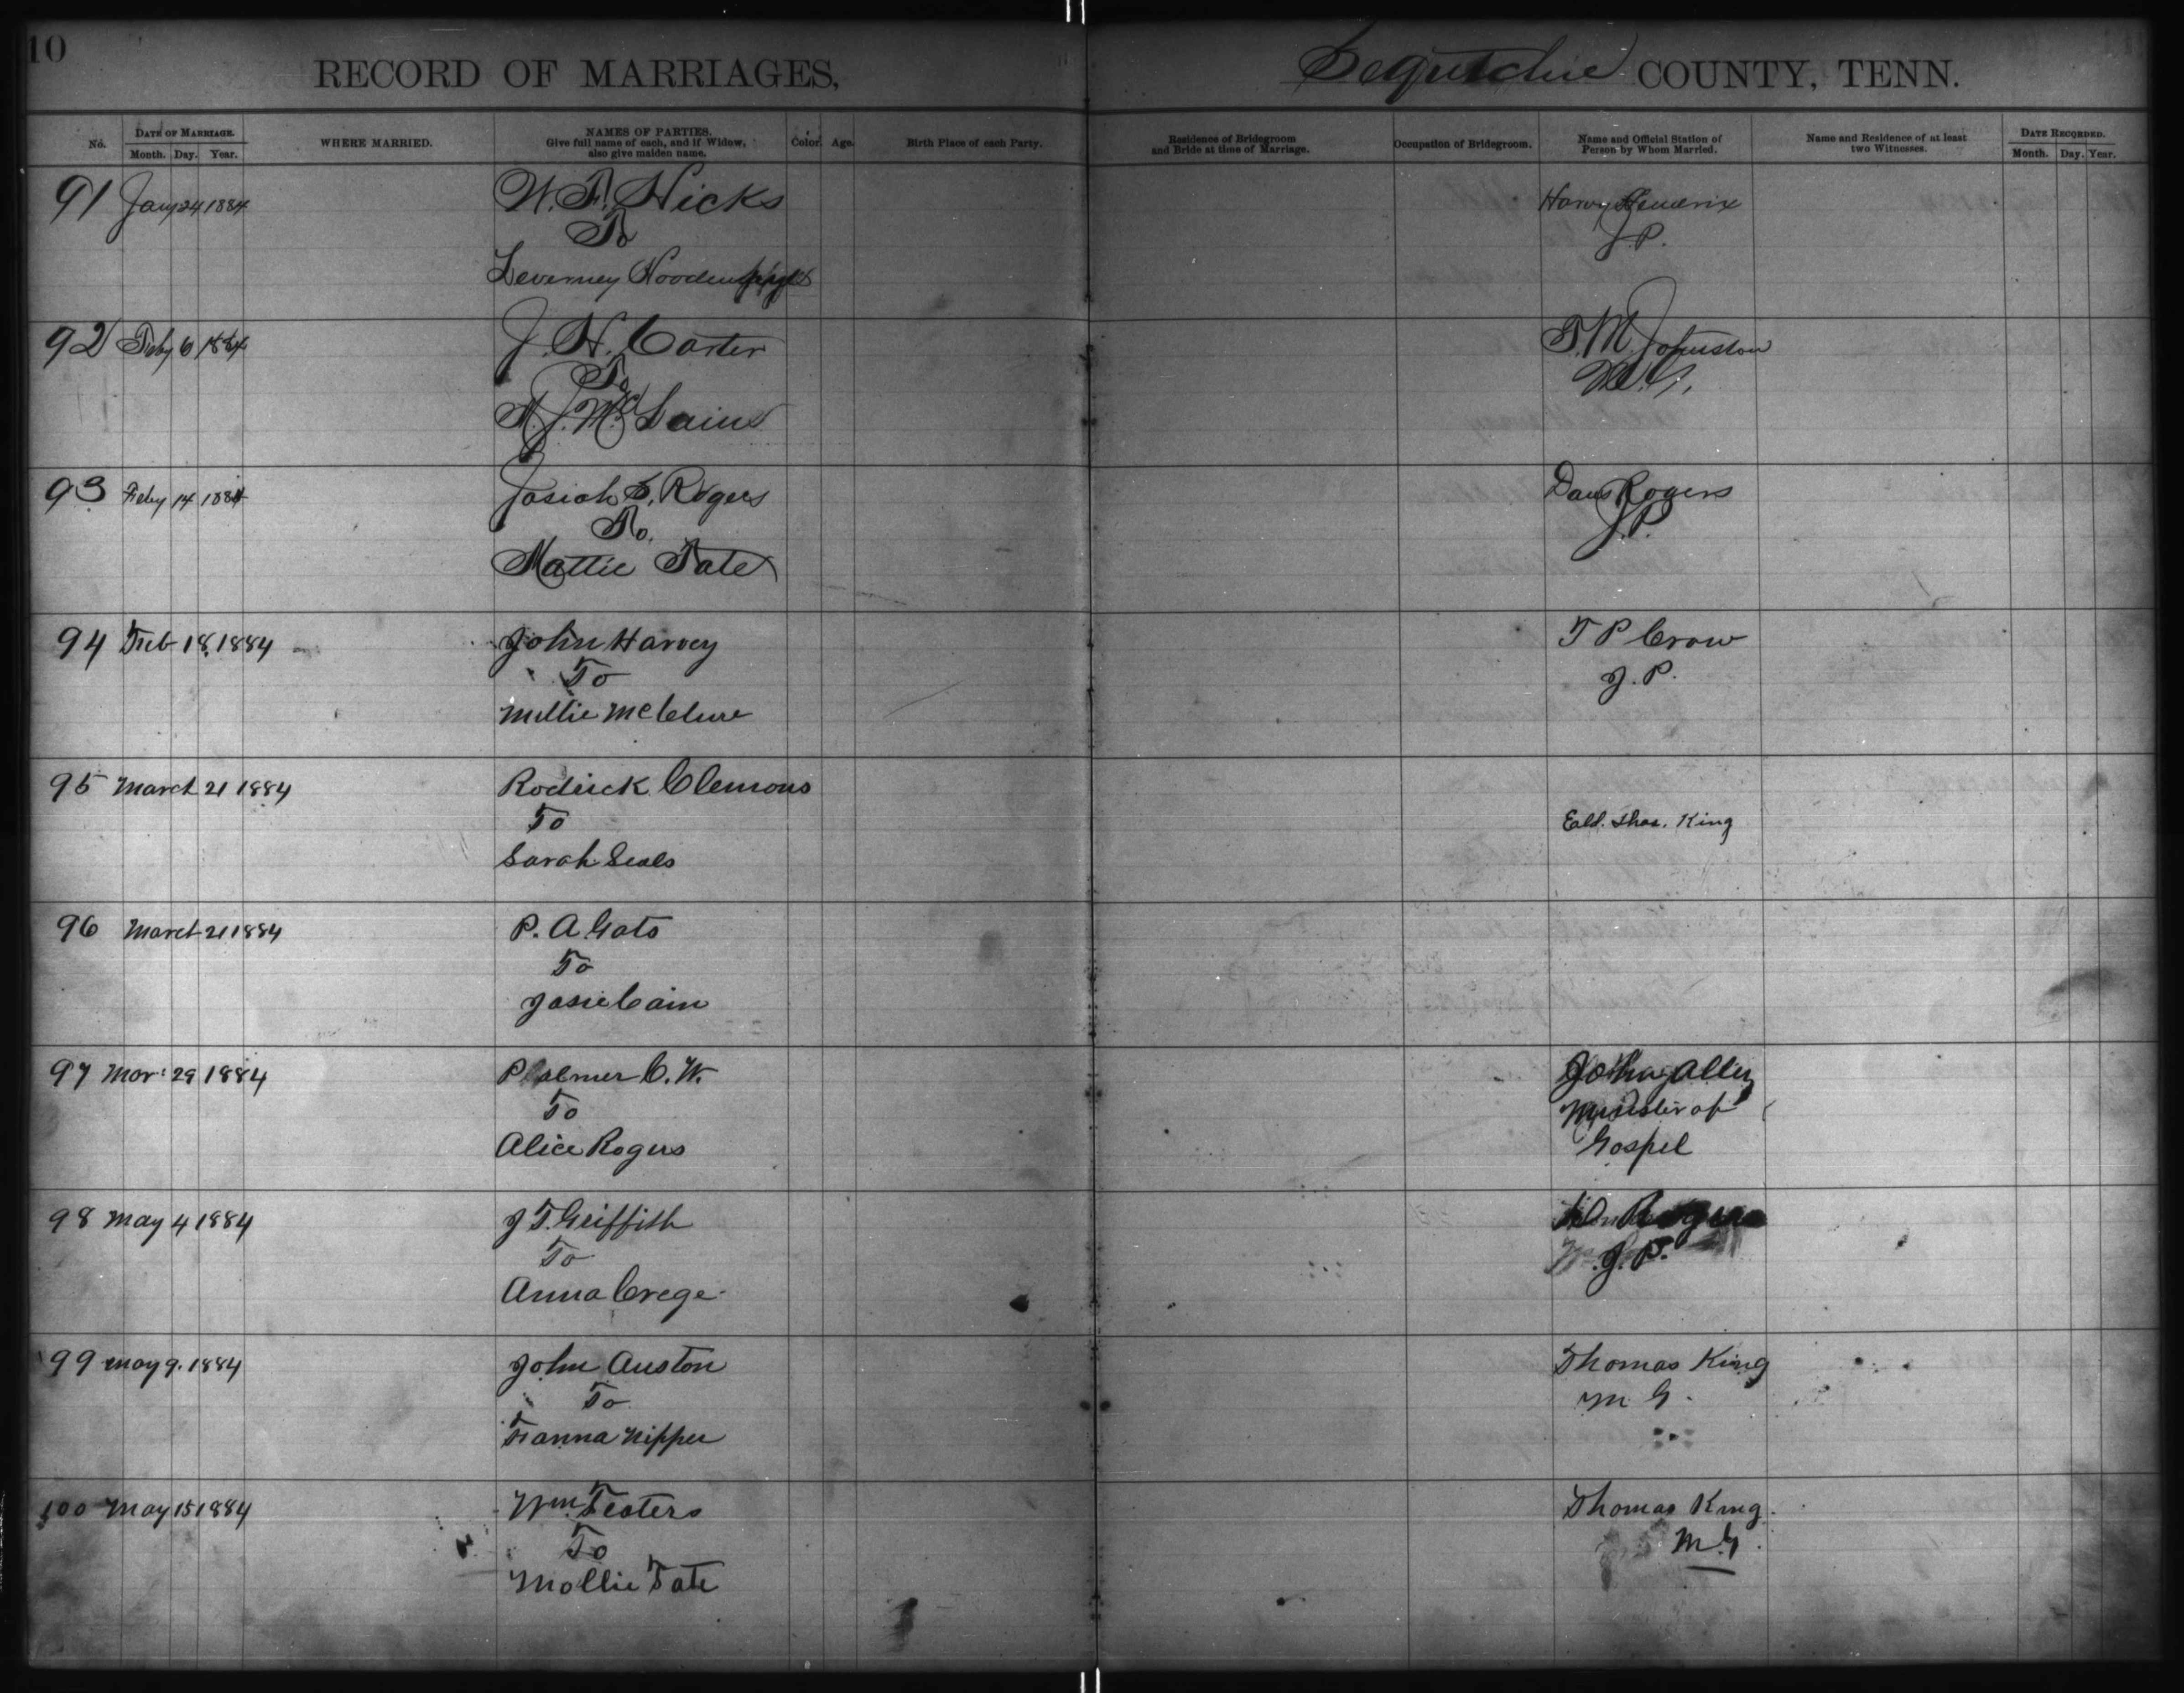 10
RECORD OF MARRIAGES, Sequatchie COUNTY, TENN.
No. DATE OF MARRIAGE. Month. Day. Year. WHERE MARRIED. NAMES OF PARTIES. Give full name of each, and if Widow, also give maiden name. Color. Age. Birth Place of each Party. Residence of Bridegroom and Bride at time of Marriage. Occupation of Bridegroom. Name and Official Station of Person by Whom Married. Name and Residence of at least two Witnesses. DATE RECORDED. Month. Day. Year.
91 Jany 24 1884 W. F. Hicks Harvy Hendrix
To J.P.
Leverney
92 Feby 6 1884 J. H. Carter T. M. Johnston
To M.G.
M. J. McSains
93 Feby 14 1884 Josiah S. Rogers Dans Rogers
To. J.P.
Mattie Tate
94 Feb 18, 1884 John Harvey T P Crow
To J. P.
Millie McClure
95 March 21 1884 Rodrick Clemons
To Eald. Thos. King
Sarah Seals
96 March 21 1884 P. A Gato
To
Josie Cain
97 Mar. 29 1884 Palmer C. W. Allen
To Minister of
Alice Rogers Gospel
98 May 4 1884 J T. Griffith Rogers
To J. P.
Anna Crege
99 May 9. 1884 John Auston Thomas King
To M G.
Fanna Nipper
100 May 15 1884 Wm. Teaters Thomas King.
To M.G.
Mollie Tate